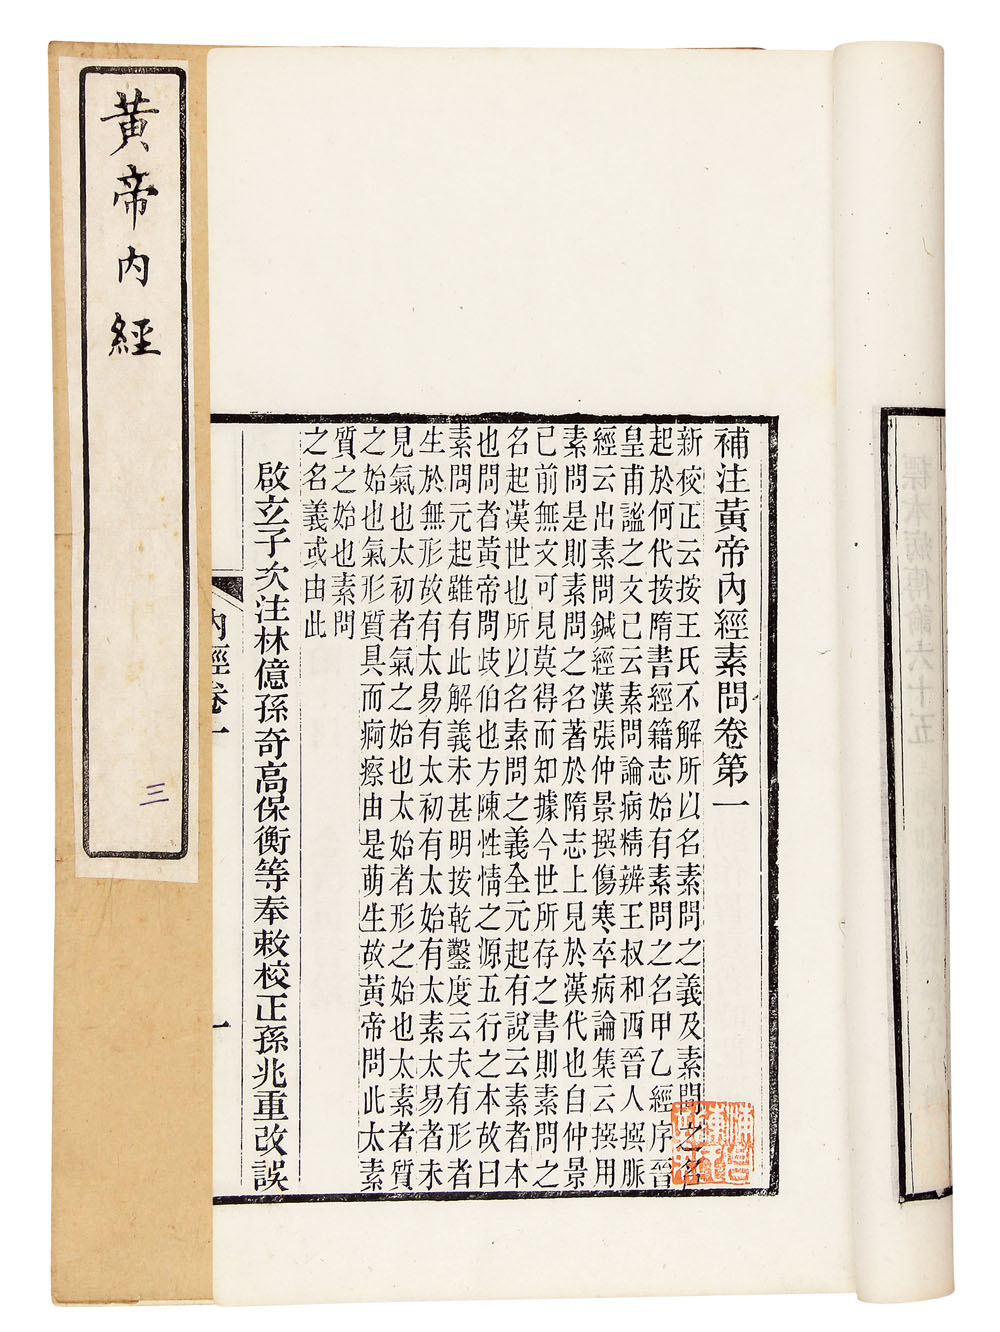 黃帝內經
三
補注黃帝內經素問卷第一
新校正云按王氏不解所以名素問之義及素問之名
起於何代按隋書經籍志始有素問之名甲乙經序晉
皇甫謐之文已云素問論病精辨王叔和西晉人撰脈
經云出素問鍼經漢張仲景撰傷寒卒病論集云撰用
素問是則素問之名著於隋志上見於漢代也自仲景
已前無文可見莫得而知據今世所存之書則素問之
名起漢世也所以名素問之義全元起有說云素者本
也問者黃帝問歧伯也方陳性情之源五行之本故曰
素問元起雖有此解義未甚明按乾鑿度云夫有形者
生於無形故有太易有太初有太始有太素太易者未
見氣也太初者氣之始也太始者形之始也太素者質
之始也氣形質具而痾瘵由是萌生故黃帝問此太素
質之始也素問
之名義或由此
啟玄子次注林億孫奇高保衡等奉敕校正孫兆重改誤
內經卷一
一
標本病傳論六十五